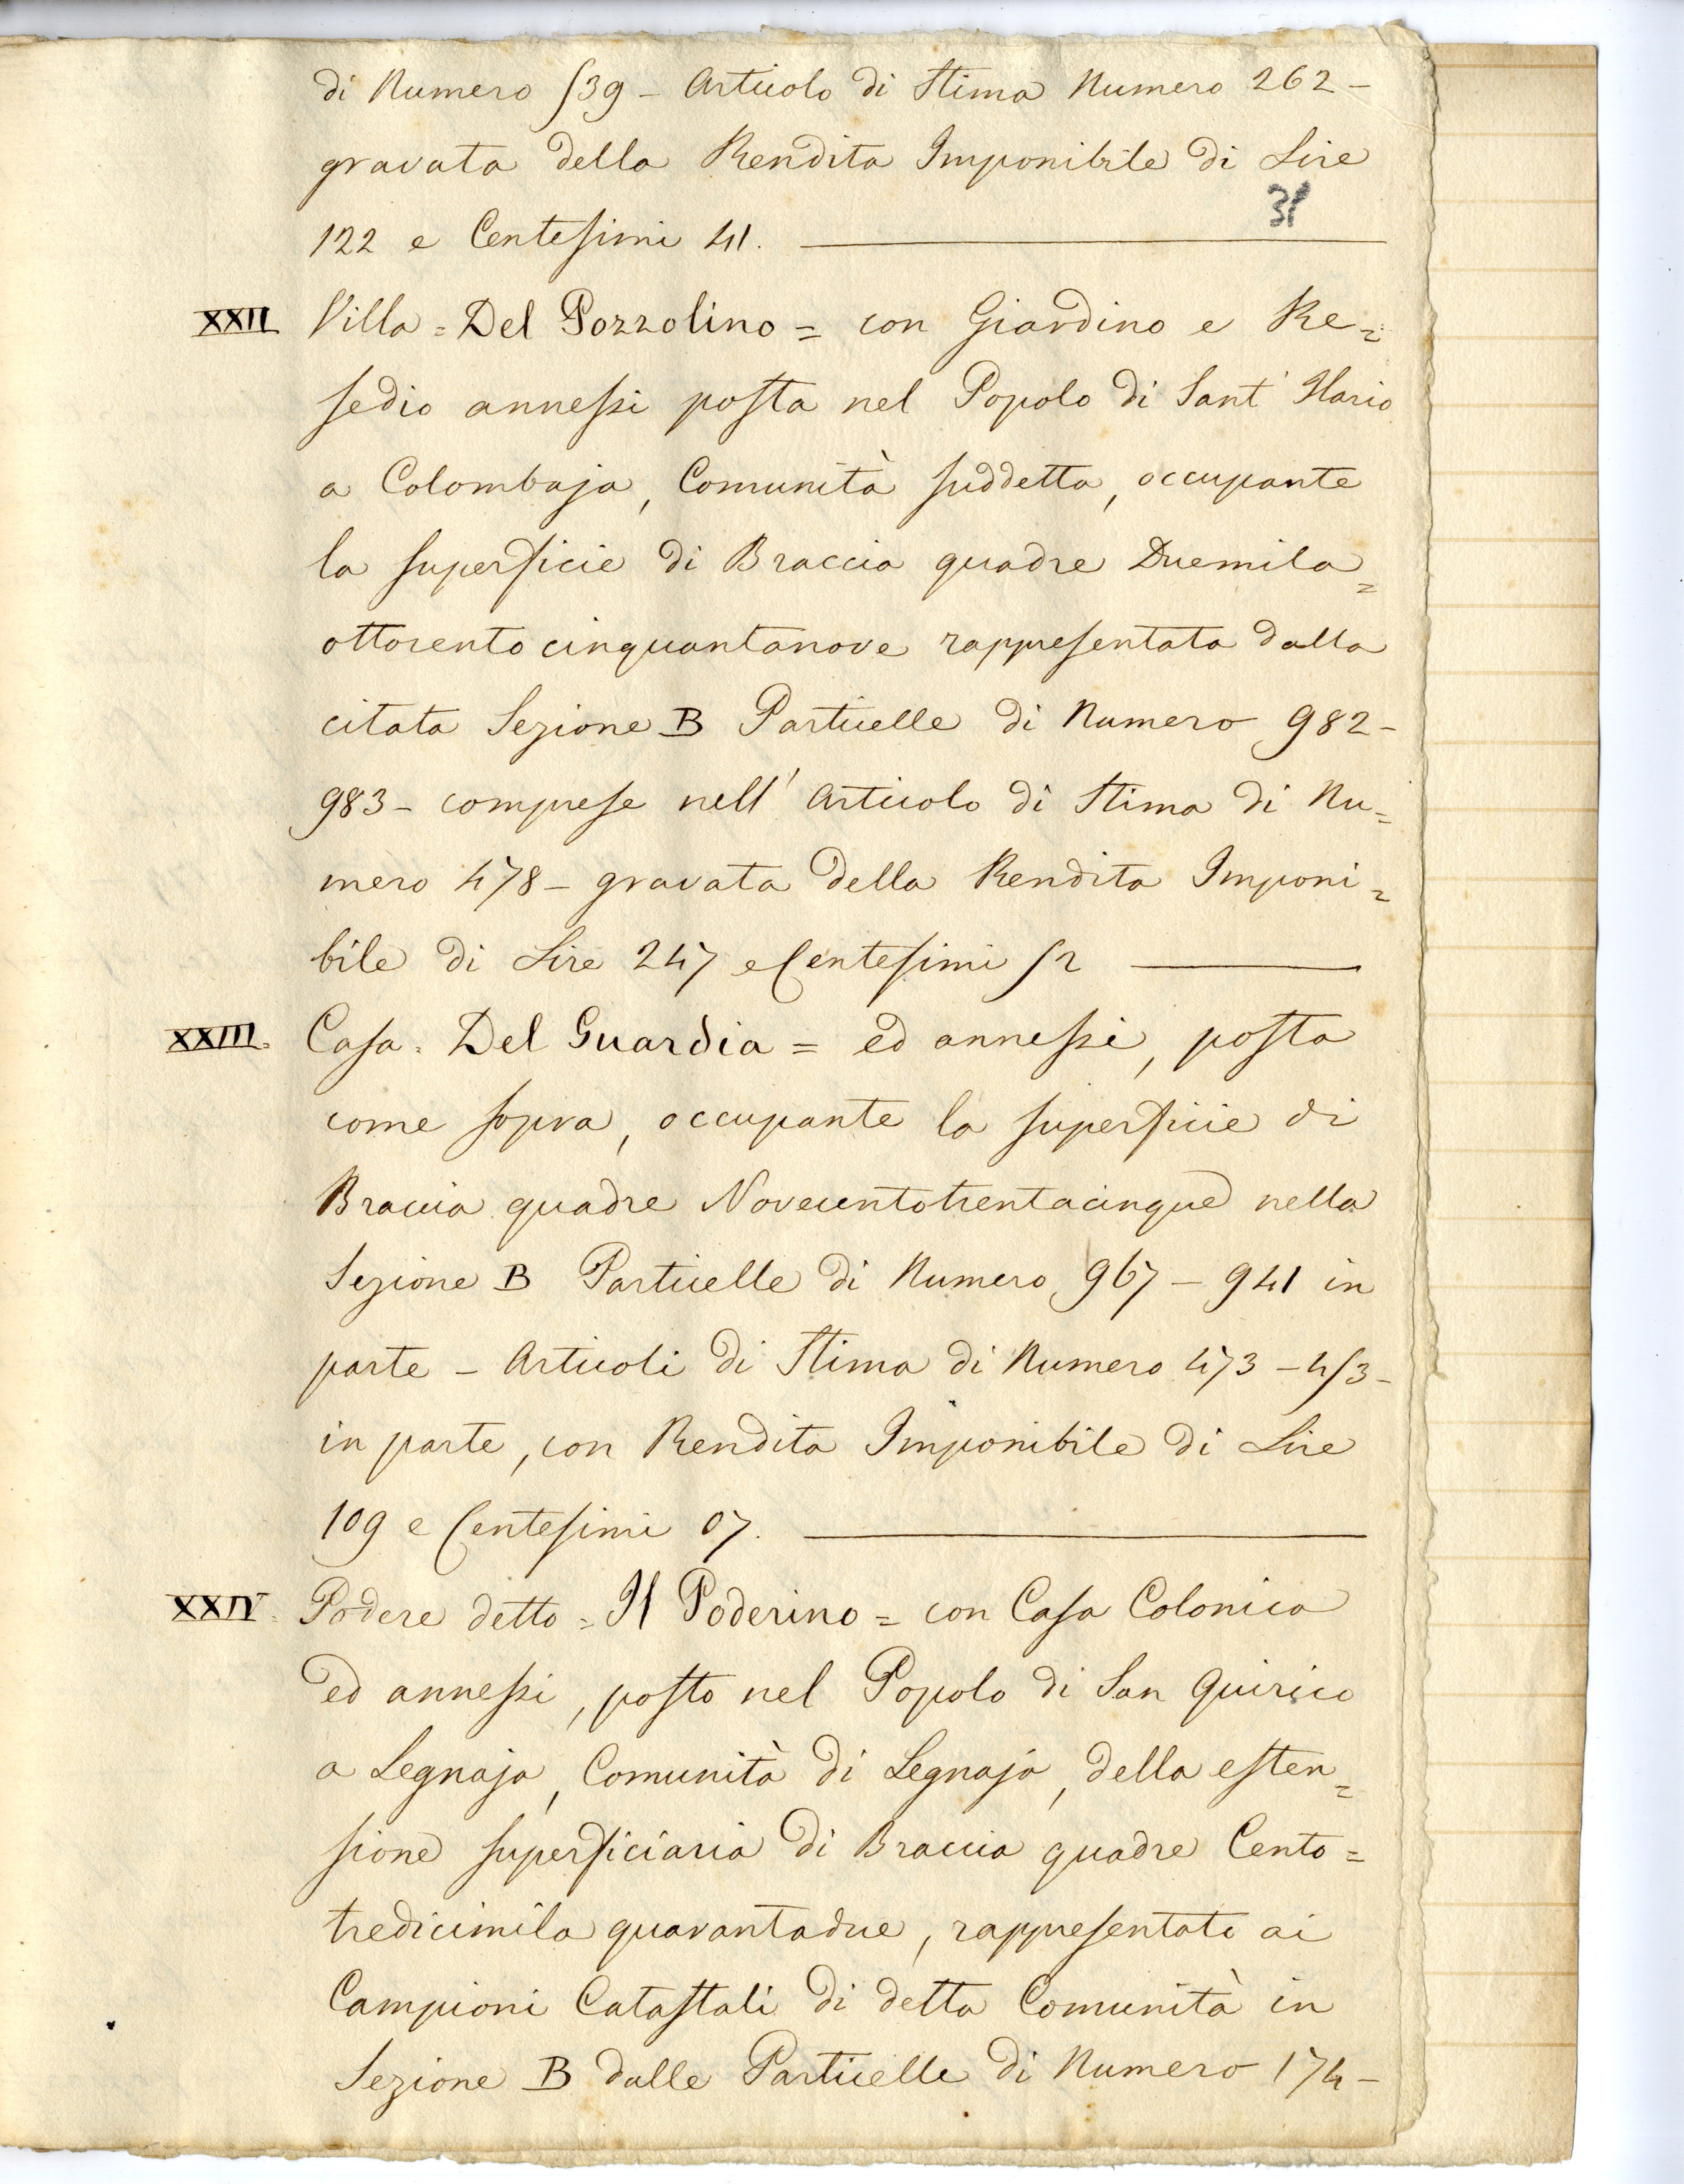 di Numero 539 - Articolo di Stima Numero 262 -
gravata della Rendita Imponibile di Lire
31
122 e Centesimi 41.
XXII Villa = Del Pozzolino = con Giardino e Re=
sedio annessi posta nel Popolo di Sant' Ilario
a Colombaja, Comunità suddetta, occupante
la superficie di Braccia quadre Duemila=
ottocentocinquantanove rappresentata dalla
citata Sezione B Particelle di Numero 982-
983 - comprese nell' Articolo di Stima di Nu=
mero 478 - gravata della Rendita Imponi=
bile di Lire 247 e Centesimi 52
XXIII. Casa = Del Guardia = ed annessi, posta
come sopra, occupante la superficie di
Braccia quadre Novecentotrentacinque nella
Sezione B Particelle di Numero 967 - 941 in
parte - Articoli di Stima di Numero 473 - 453 -
in parte, con Rendita Imponibile di Lire
109 e Centesimi 07.
XXIV. Podere detto = Il Poderino = con Casa Colonica
ed annessi, posto nel Popolo di San Quirico
a Legnaja, Comunità di Legnaja, della esten=
sione superficiaria di Braccia quadre Cento=
tredicimila quarantadue, rappresentato ai
Campioni Catastali di detta Comunità in
Sezione B dalle Particelle di Numero 174 -